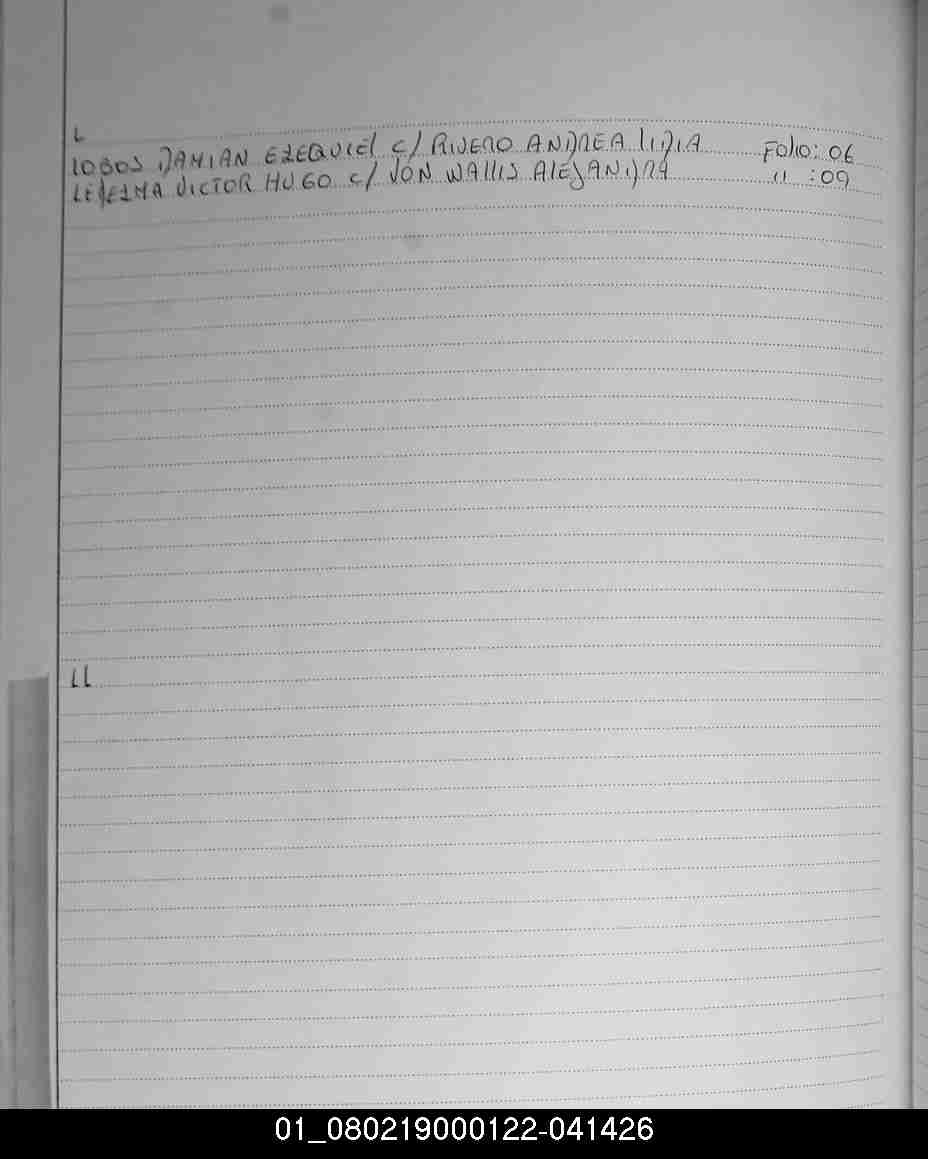 L
LOBOS DAMIAN EZEQUIEL C/ RIVERO ANDREA LIDIA FOLIO: 06
LEDEZMA VICTOR HUGO C/ VON WALLIS ALEJANDRA " : 09
LL
01_080219000122-041426